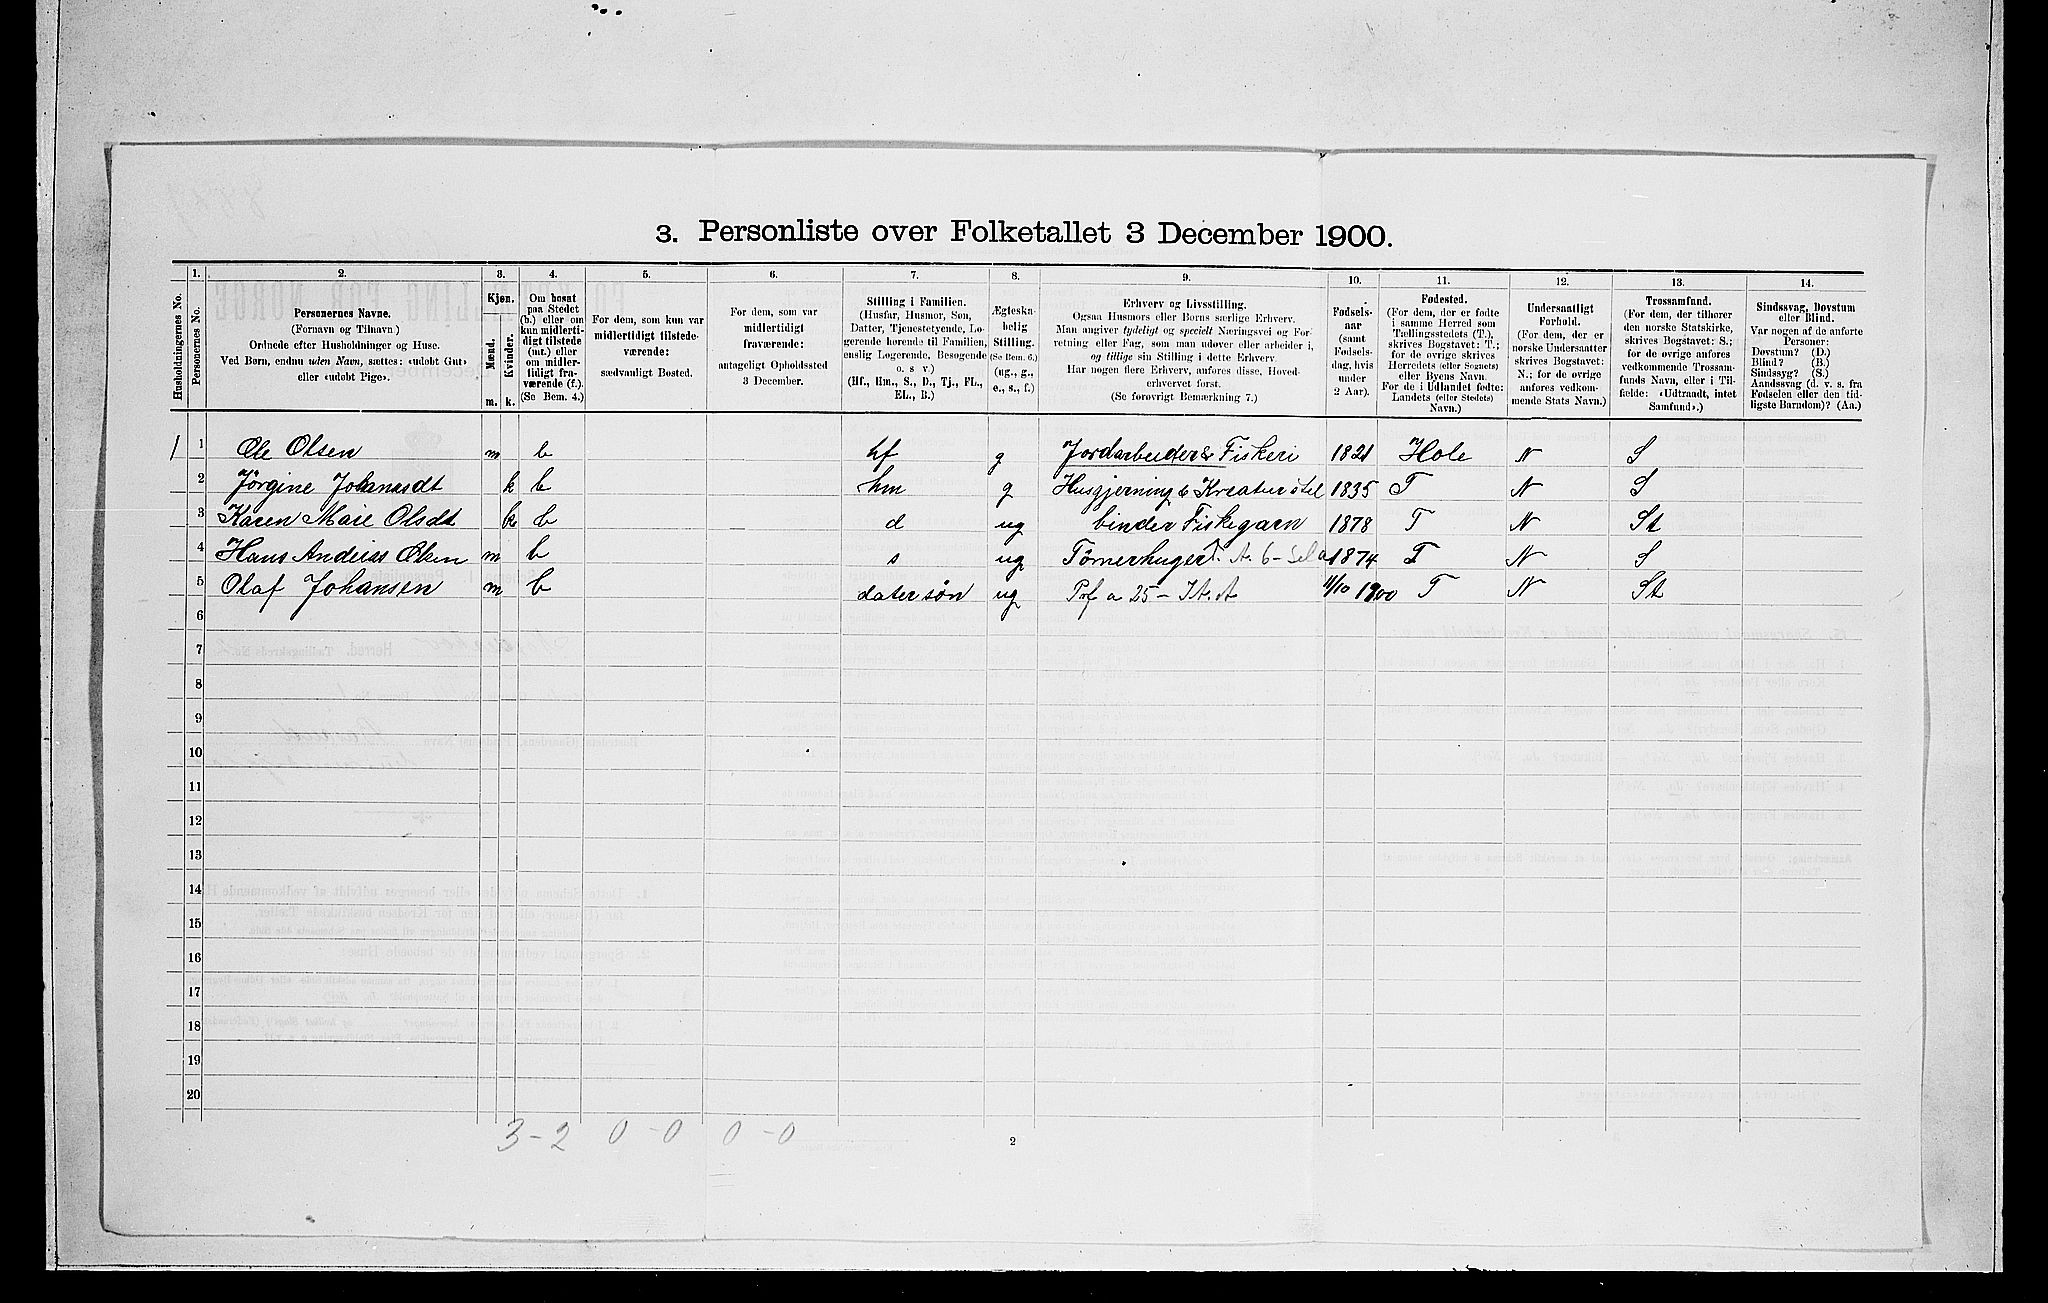 3. Personliste over Folketallet 3 December 1900.
1. 2. 3. 4. 5. 6. 7. 8. 9. 10. 11. 12. 13. 14.
Husholdningernes No.
Personernes No.
Personernes Navne.
(Fornavn og Tilnavn)
Ordnede efter Husholdninger og Huse.
Ved Børn, endnu uden Navn, sættes: «udøbt Gut»
eller «udøbt Pige».
Kjøn.
Mænd.
Kvinder.
m. k.
Om bosat
paa Stedet
(b.) eller om
kun midlerti-
digt tilstede
(mt.) eller
om midler-
tidigt fra-
værende (f.).
(Se Bem. 4.)
For dem, som kun var
midlertidigt tilstede-
værende:
sædvanligt Bosted.
For dem, som var
midlertidigt
fraværende:
antageligt Opholdssted
3 December.
Stilling i Familien.
(Husfar, Husmor, Søn,
Datter, Tjenestetyende, Lo-
gerende hørende til Familien,
enslig Logerende, Besøgende
o. s v.)
(Hf., Hm., S., D., Tj., FL.,
EL., B.)
Ægteska-
belig
Stilling.
(Se Bem. 6.)
(ug., g.,
e., s., f.)
Erhverv og Livsstilling.
Ogsaa Husmors eller Børns særlige Erhverv.
Man angiver tydeligt og specielt Næringsvei og For-
retning eller Fag, som man udøver eller arbeider i,
og tillige sin Stilling i dette Erhverv.
Har nogen flere Erhverv, anføres disse, Hoved-
erhvervet først.
(Se forøvrigt Bemærkning 7.)
Fødsels-
aar
(samt
Fødsels-
dag, hvis
under
2 Aar).
Fødested.
(For dem, der er fødte
i samme Herred som
Tællingsstedets (T.),
skrives Bogstavet: T.;
for de øvrige skrives
Herredets (eller Sognets)
eller Byens Navn.
For de i Udlandet fødte:
Landets (eller Stedets)
Navn.)
Undersaatligt
Forhold.
(For dem, der er
norske Undersaatter
skrives Bogstavet:
N.; for de øvrige
anføres vedkom-
mende Stats Navn.)
Trossamfund.
(For dem, der tilhører
den norske Statskirke,
skrives Bogstavet: S.;
for de øvrige anføres
vedkommende Trossam-
funds Navn, eller i Til-
fælde: «Udtraadt, intet
Samfund».)
Sindssvag, Døvstum
eller Blind.
Var nogen af de anførte
Personer:
Døvstum? (D.)
Blind? (B.)
Sindssyg? (S.)
Aandssvag (d. v. s. fra
Fødselen eller den tid-
ligste Barndom)? (Aa.)
1 1 Ole Olsen m b hf g Jordarbeider & Fiskeri 1821 Hole N S
2 Jörgine Johansdt k b hm g Husgjerning & Kreaturstel 1835 T N S
3 Karen Marie Olsdt k b d ug binder Fiskegarn 1878 T N St
4 Hans Andreas Olsen m b s ug Tömerhuger 1874 T N S
5 Olaf Johansen m b datersön ug 11/10 1900 T N St
6
7
8
9
10
11
12
13
14
15
16
17
18
19
20
3 - 2 0 - 0 0 - 0
2